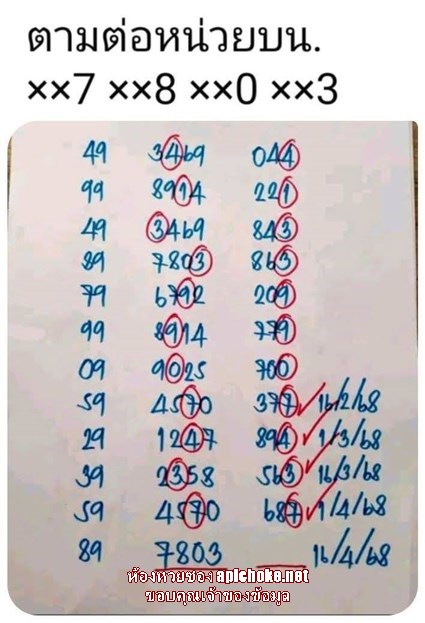 ตามต่อหน่วยบน.
××7 ××8 ××0 ××3
49 3469 044
99 8914 221
49 3469 843
89 7803 863
79 6792 209
99 8914 779
09 9025 700
59 4570 377 16/2/68
29 1247 894 1/3/68
39 2358 563 16/3/68
59 4570 687 1/4/68
89 7803 16/4/68
ห้องหวยซอง apichoke.net
ขอบคุณเจ้าของข้อมูล